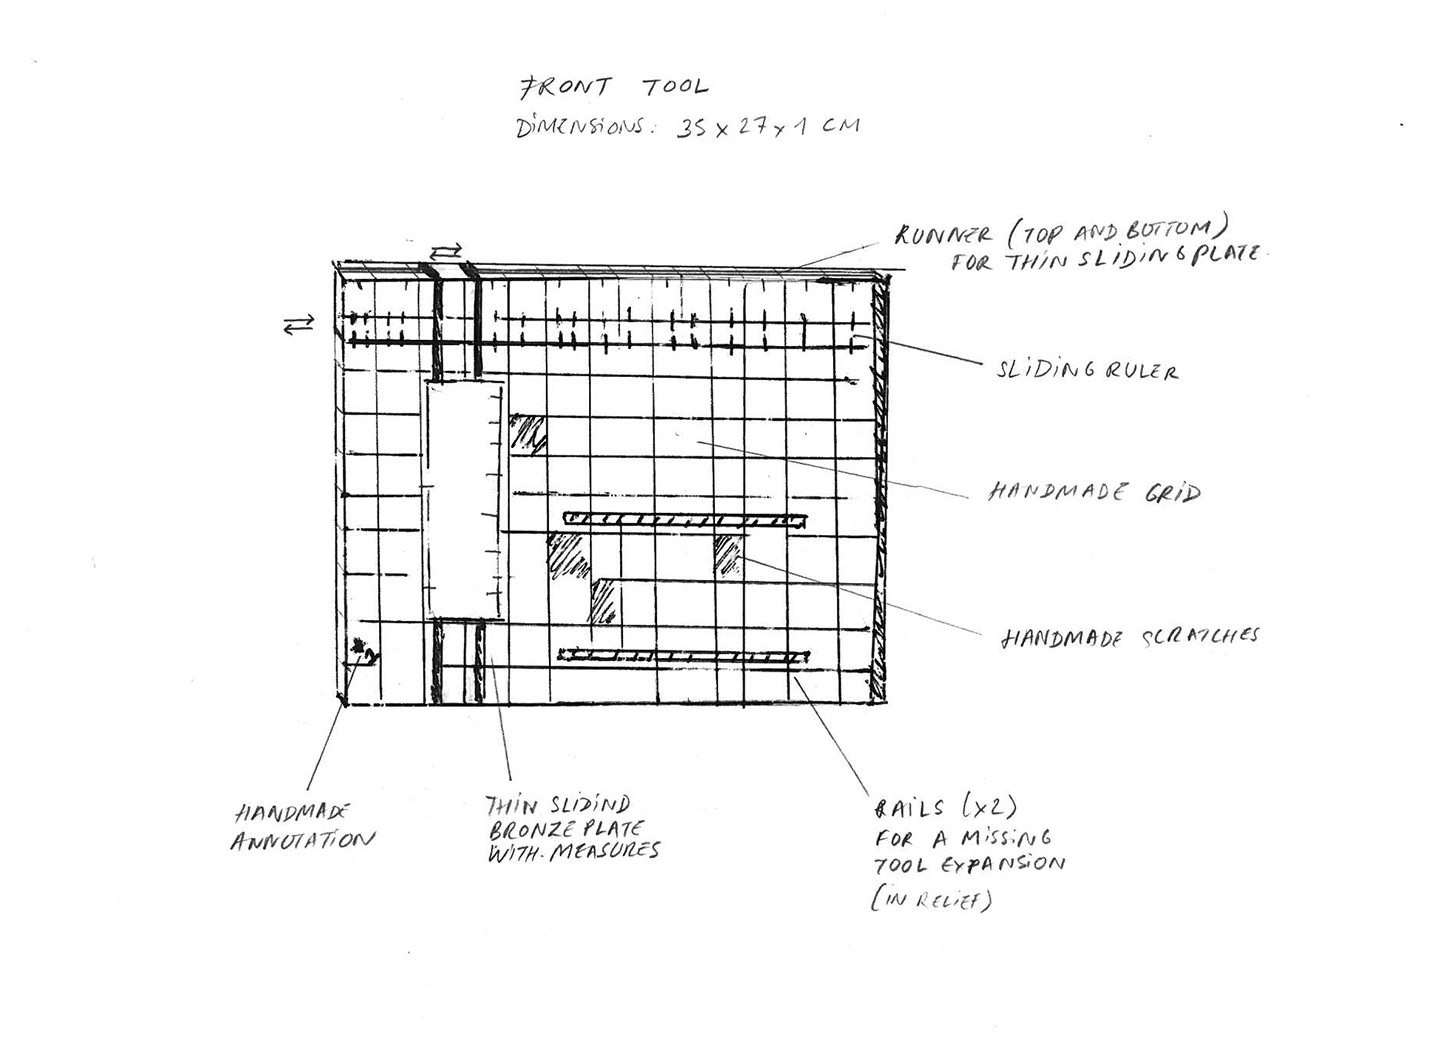 FRONT TOOL
DIMENSIONS: 35 x 27 x 1 CM
RUNNER (TOP AND BOTTOM)
FOR THIN SLIDING PLATE
SLIDING RULER
HANDMADE GRID
HANDMADE SCRATCHES
HANDMADE
ANNOTATION
THIN SLIDIND
BRONZE PLATE
WITH MEASURES
RAILS (X2)
FOR A MISSING
TOOL EXPANSION
(IN RELIEF)